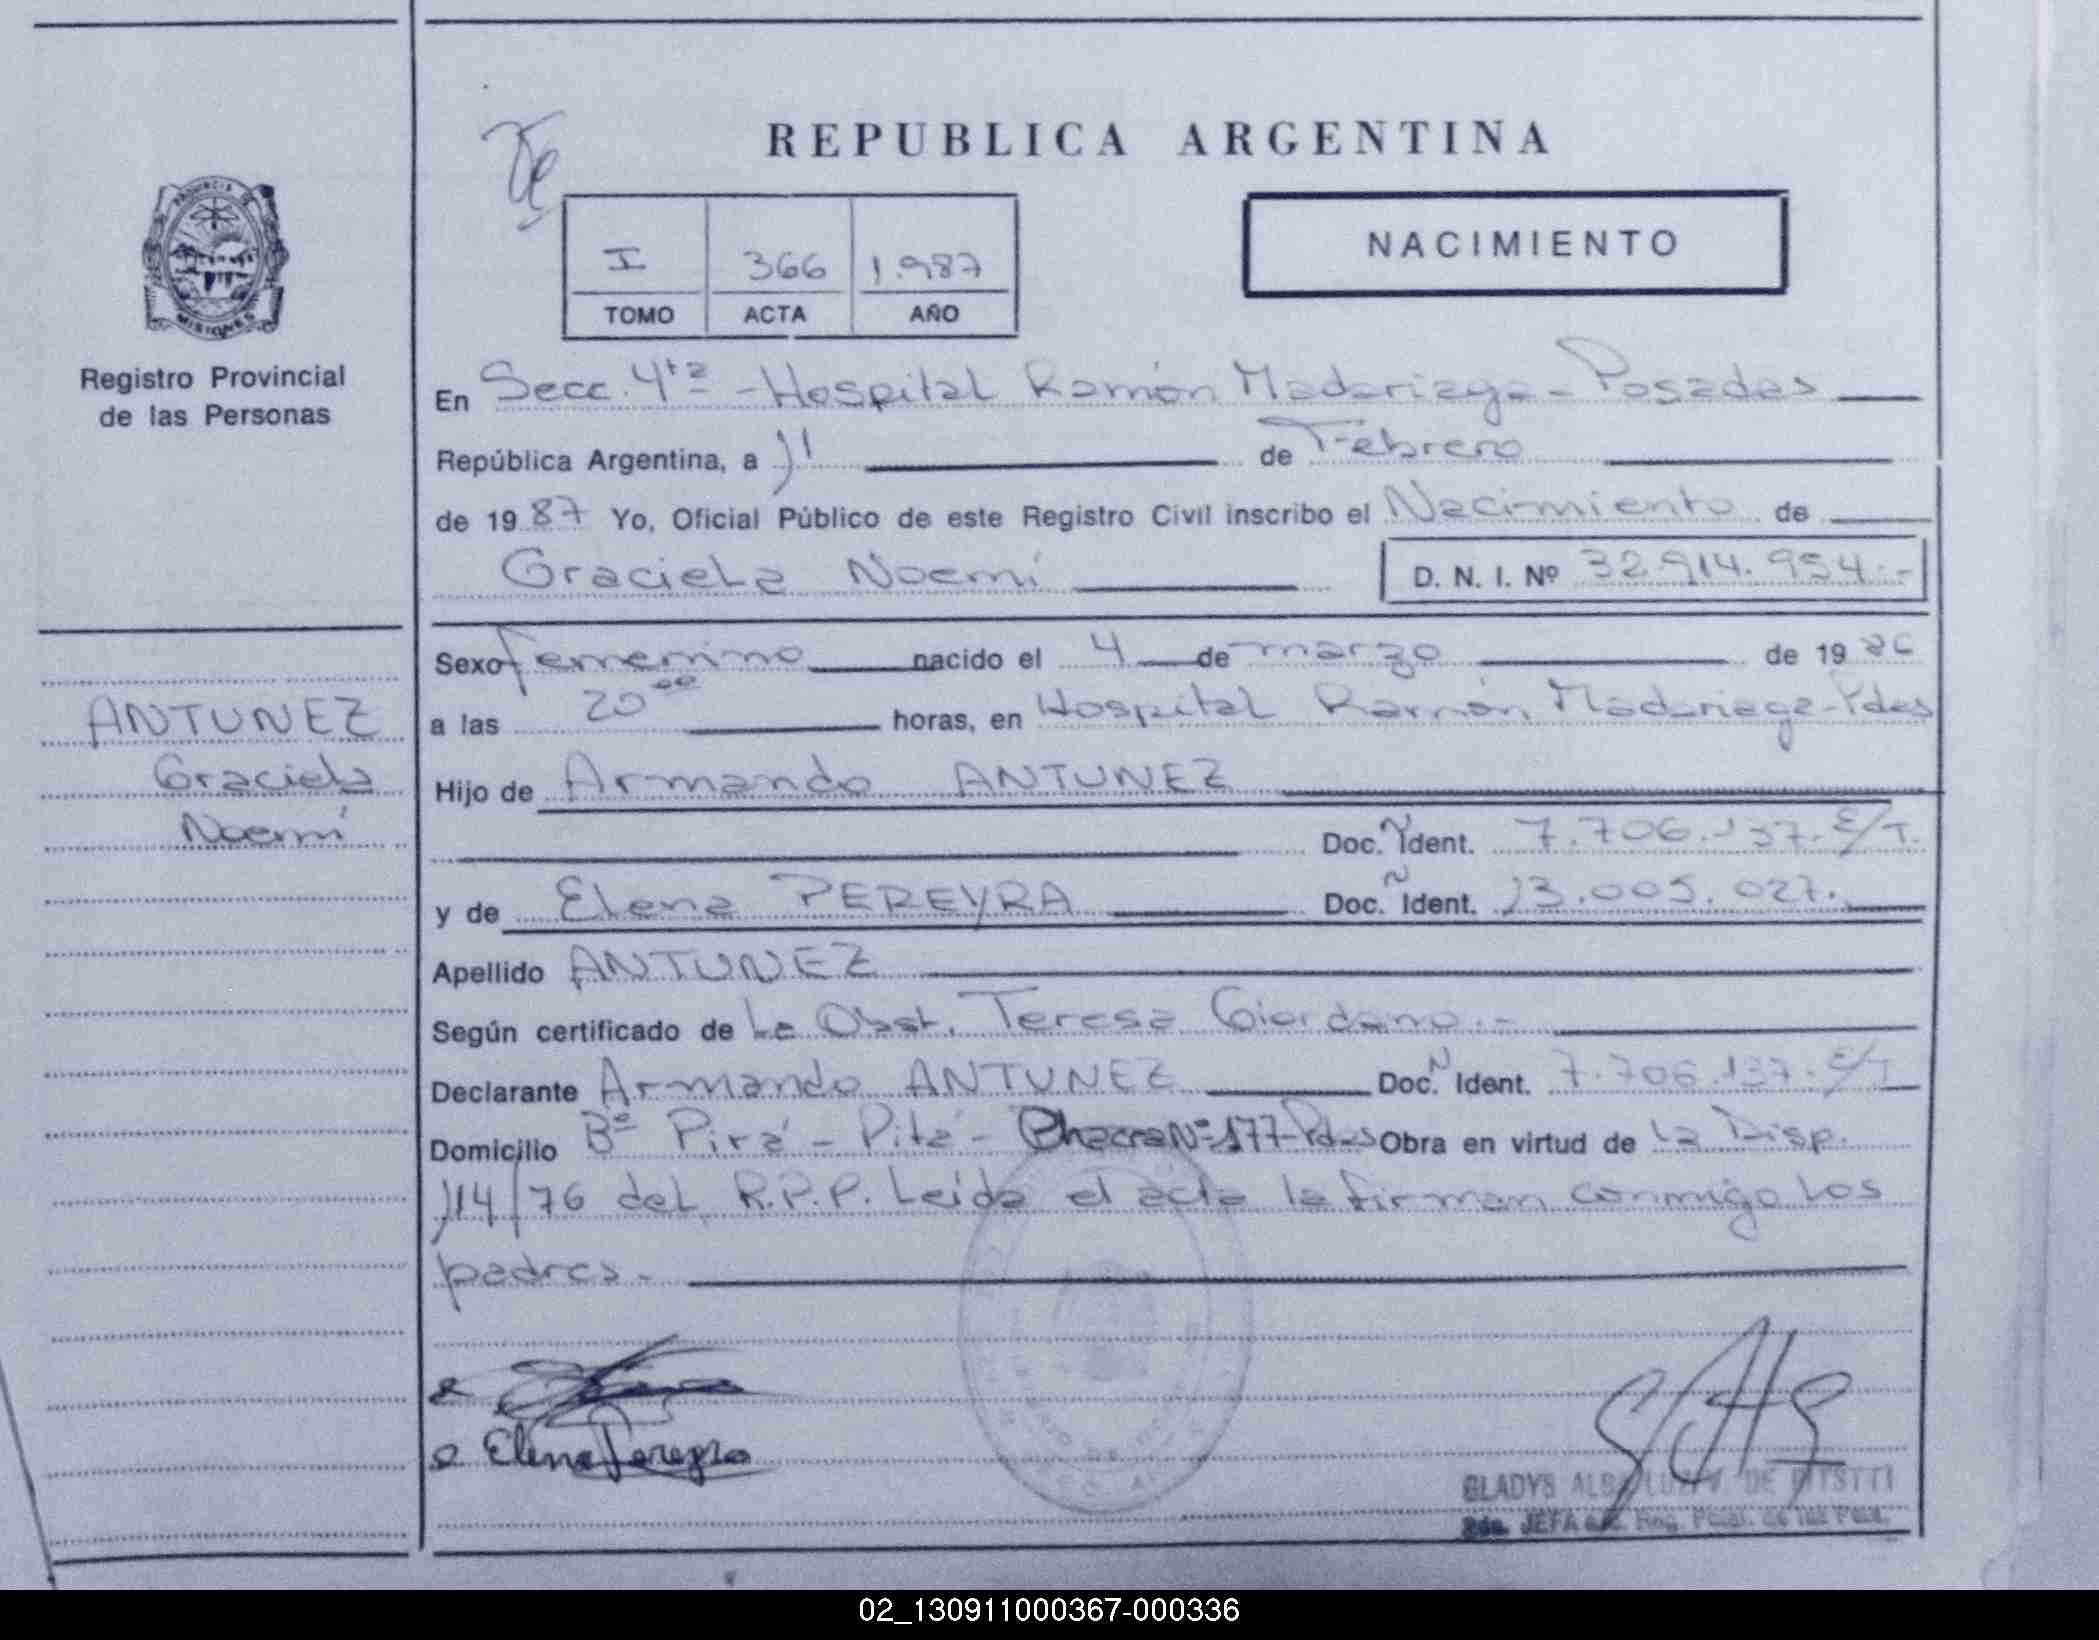 REPUBLICA ARGENTINA
PROVINCIA DE
MISIONES
Registro Provincial
de las Personas
I 366 1.987
TOMO ACTA AÑO
NACIMIENTO
En Secc. 4ta - Hospital Ramón Madariaga - Posadas
República Argentina, a 11 de Febrero
de 1987 Yo, Oficial Público de este Registro Civil inscribo el Nacimiento de
Graciela Noemí D. N. I. Nº 32.914.954.-
Sexo femenino nacido el 4 de marzo de 1986
a las 20 00 horas, en Hospital Ramón Madariaga-Pdas
Hijo de Armando ANTUNEZ
Doc. Ident. 7.706.137. E/T.
y de Elena PEREYRA Doc. Ident. 13.005.027.
Apellido ANTUNEZ
Según certificado de la Obst. Teresa Giordano.-
Declarante Armando ANTUNEZ Doc. Ident. 7.706.137. E/T
Domicilio Bº Pirá - Pitá - Chacra Nº 177-Pdas Obra en virtud de la Disp.
114/76 del R.P.P. Leida el acta la firman conmigo los
padres.-
ANTUNEZ
Graciela
Noemí
Elena Pereyra
GLADYS ALBA DE
JEFA
02_130911000367-000336